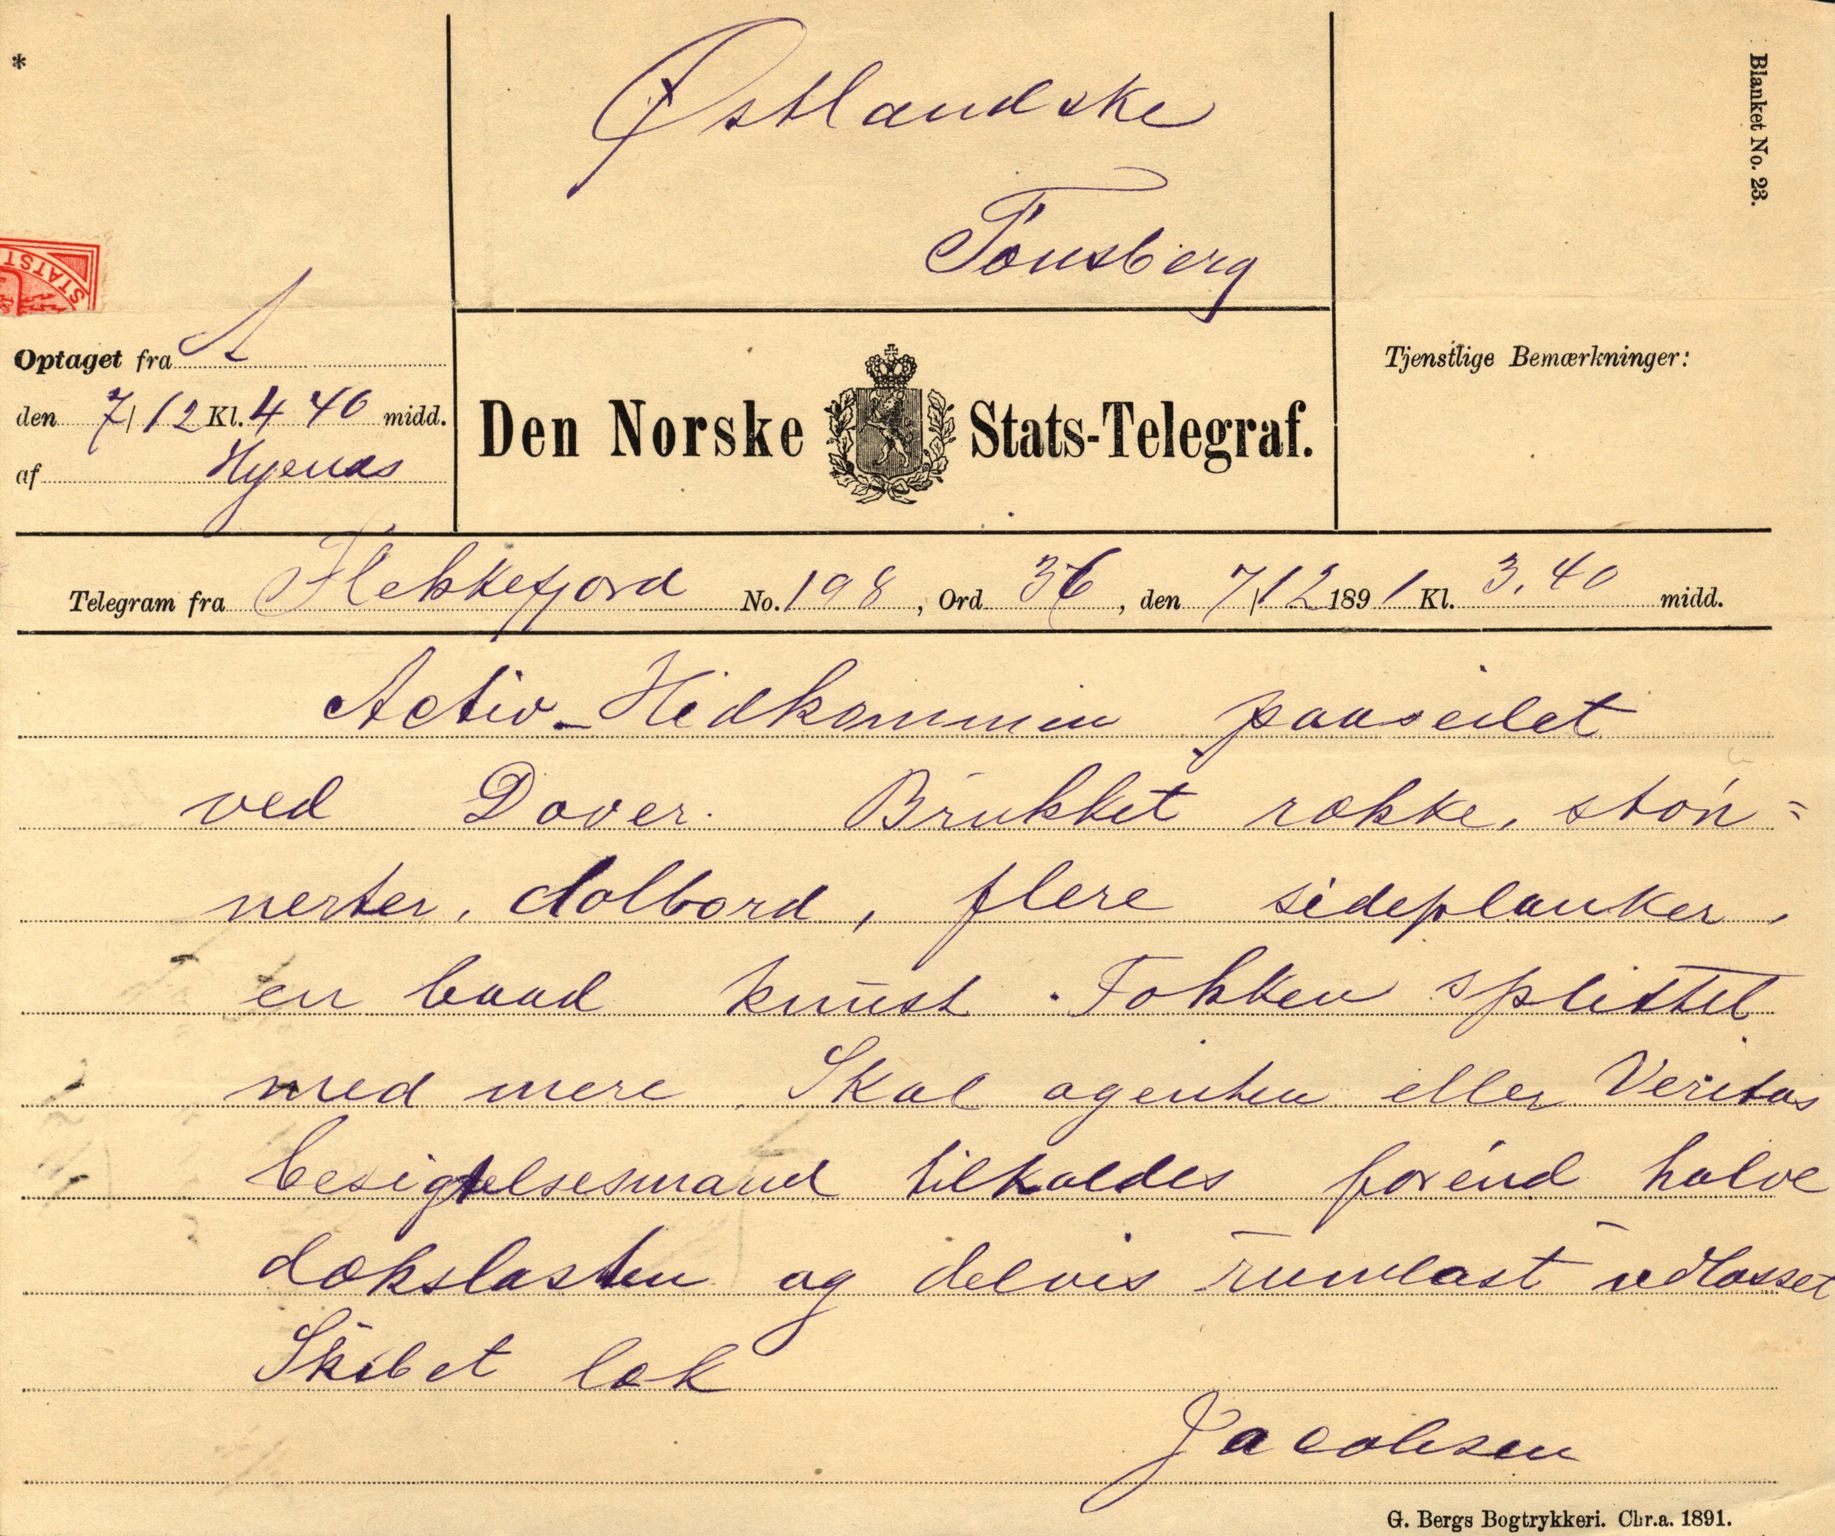 *
Østlandske
Tönsberg
Blanket No. 23.
STATST
Optaget fra A
den 7/12 Kl. 4 40 midd.
af
Den Norske Stats-Telegraf.
Tjenstlige Bemærkninger:
Telegram fra Flekkefjord No. 198, Ord 36, den 7/12 1891 Kl. 3.40 midd.
Activ - Hidkommen paaseilet
ved Dover. Brukket række, støn=
nerter, dolbord, flere sideplanker,
en baad knust. Fokken splittet
med mere. Skal agenten eller Veritas
besigtelsesmand tilkaldes forend halve
dækslasten og delvis rumlast udlosset
Skibet læk
Jacobsen
G. Bergs Bogtrykkeri. Chr.a. 1891.